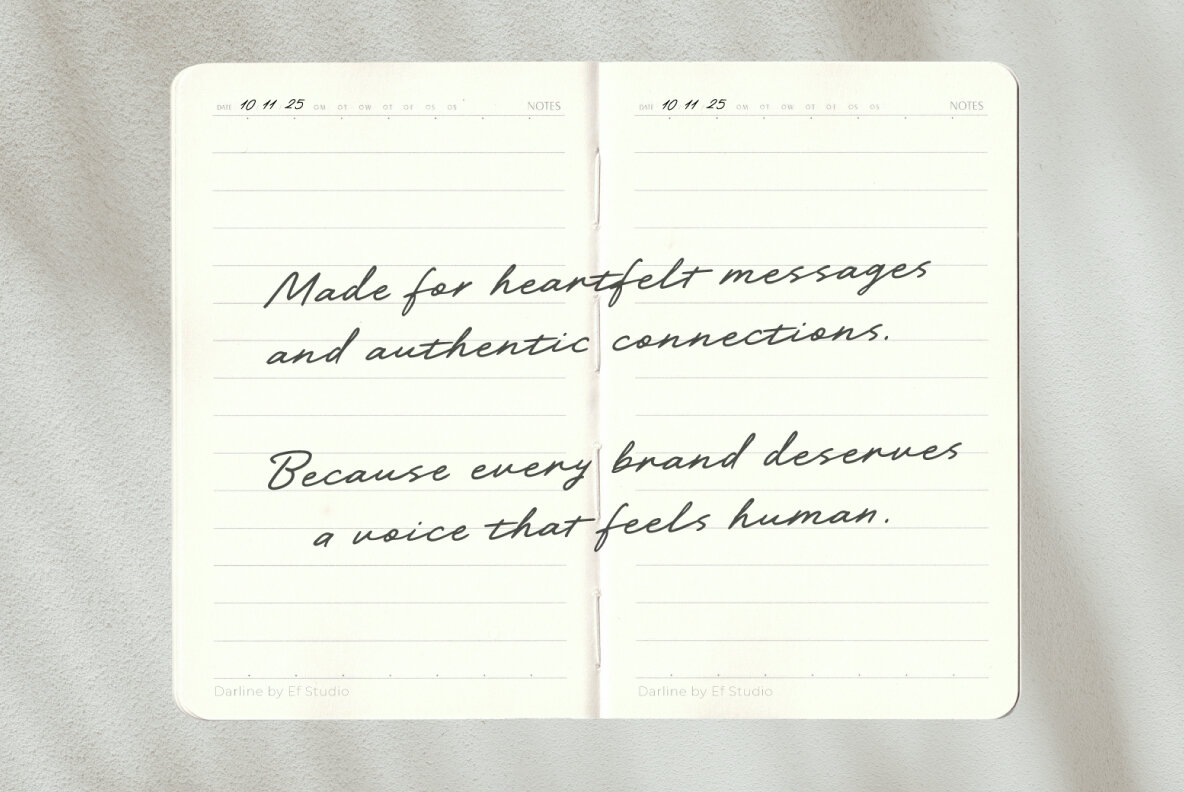 DATE 10 11 25 OM OT OW OT OT OS OS NOTES
DATE 10 11 25 OM OT OW OT OT OS OS NOTES
Made for heartfelt messages
and authentic connections.
Because every brand deserves
a voice that feels human.
Darline by Ef Studio
Darline by Ef Studio